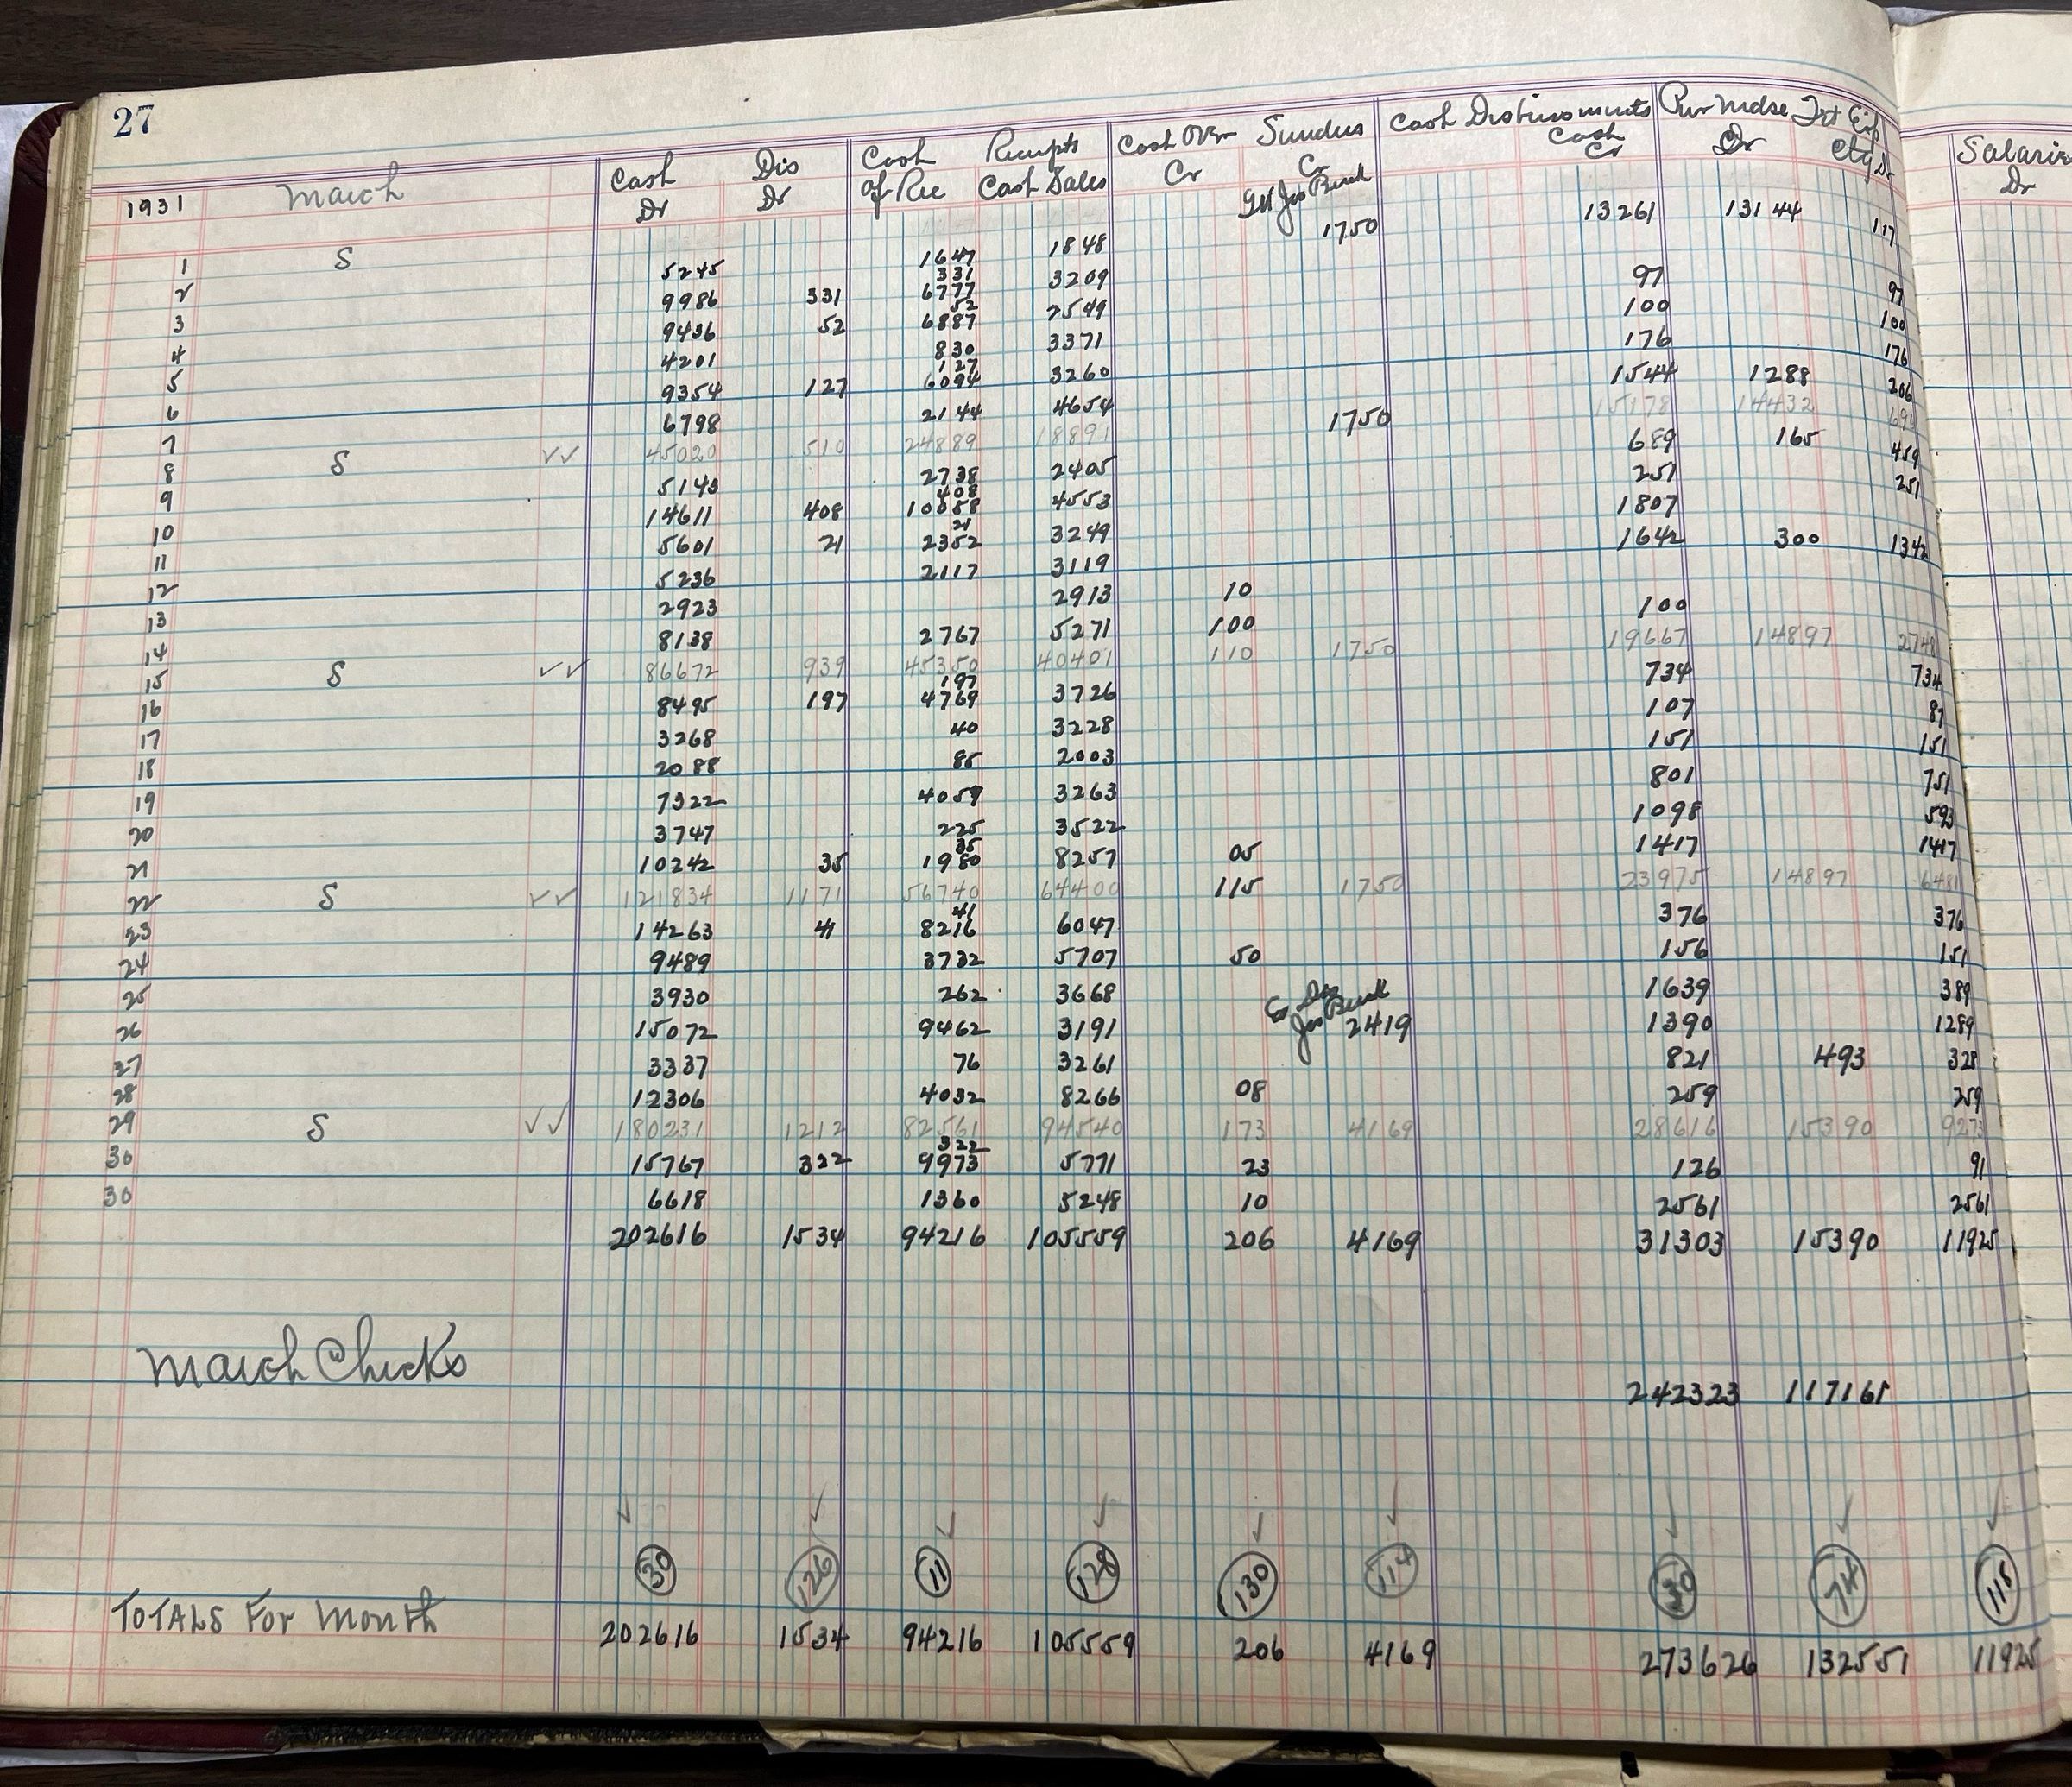 27
Cash Receipts Cash Over Sundries Cash Disbursements Pur Mdse Frt Exp
1931 March Cash Dr Dis Dr of Rec Cash Sales Cr Cr Cash Cr Dr Etc Dr Salaries Dr
Jos Buck 13261 13144 117
1 S 1750
2 5245 1647 1848
331
3 9986 331 6777 3209 97 97
52
4 9436 52 6887 2549 100 100
5 4201 830 3371 176 176
127
6 9354 127 6094 3260 1544 1288 206
7 6798 2144 4654 1750 15178 14432
8 S √√ 45020 510 24889 18891 689 165 459
9 5143 2738 2405 251 251
408
10 14611 408 10058 4553 1807
21
11 5601 21 2352 3249 1642 300 1342
12 5236 2117 3119
13 2923 2913 10 100
14 8138 2767 5271 100 19667 14897 2748
15 S √√ 86672 939 45350 40401 110 1750 734 734
197
16 8495 197 4769 3726 107 87
17 3268 40 3228 151 151
18 2088 85 2003 801 751
19 7322 4059 3263 1098 593
20 3747 225 3522 1417 1417
35
21 10242 35 1980 8257 05 23975 14897 6481
22 S √√ 121834 1171 56740 64400 115 1750 376 376
41
23 14263 41 8216 6047 156 151
24 9489 3732 5707 50 1639 389
25 3930 262 3668 Jos Buck
26 15072 9462 3191 2419 1390 1289
27 3337 76 3261 821 493 328
28 12306 4032 8266 08 259 259
29 S √√ 180231 1212 82561 94540 173 4169 28616 15390 9273
322
30 15767 322 9973 5771 23 126 91
30 6618 1360 5248 10 2561 2561
202616 1534 94216 105559 206 4169 31303 15390 11925
March Checks 242323 117161
√ √ √ √ √ √ √ √ √
30 126 11 128 130 114 30 74 115
TOTALS For Month 202616 1534 94216 105559 206 4169 273626 132551 11925